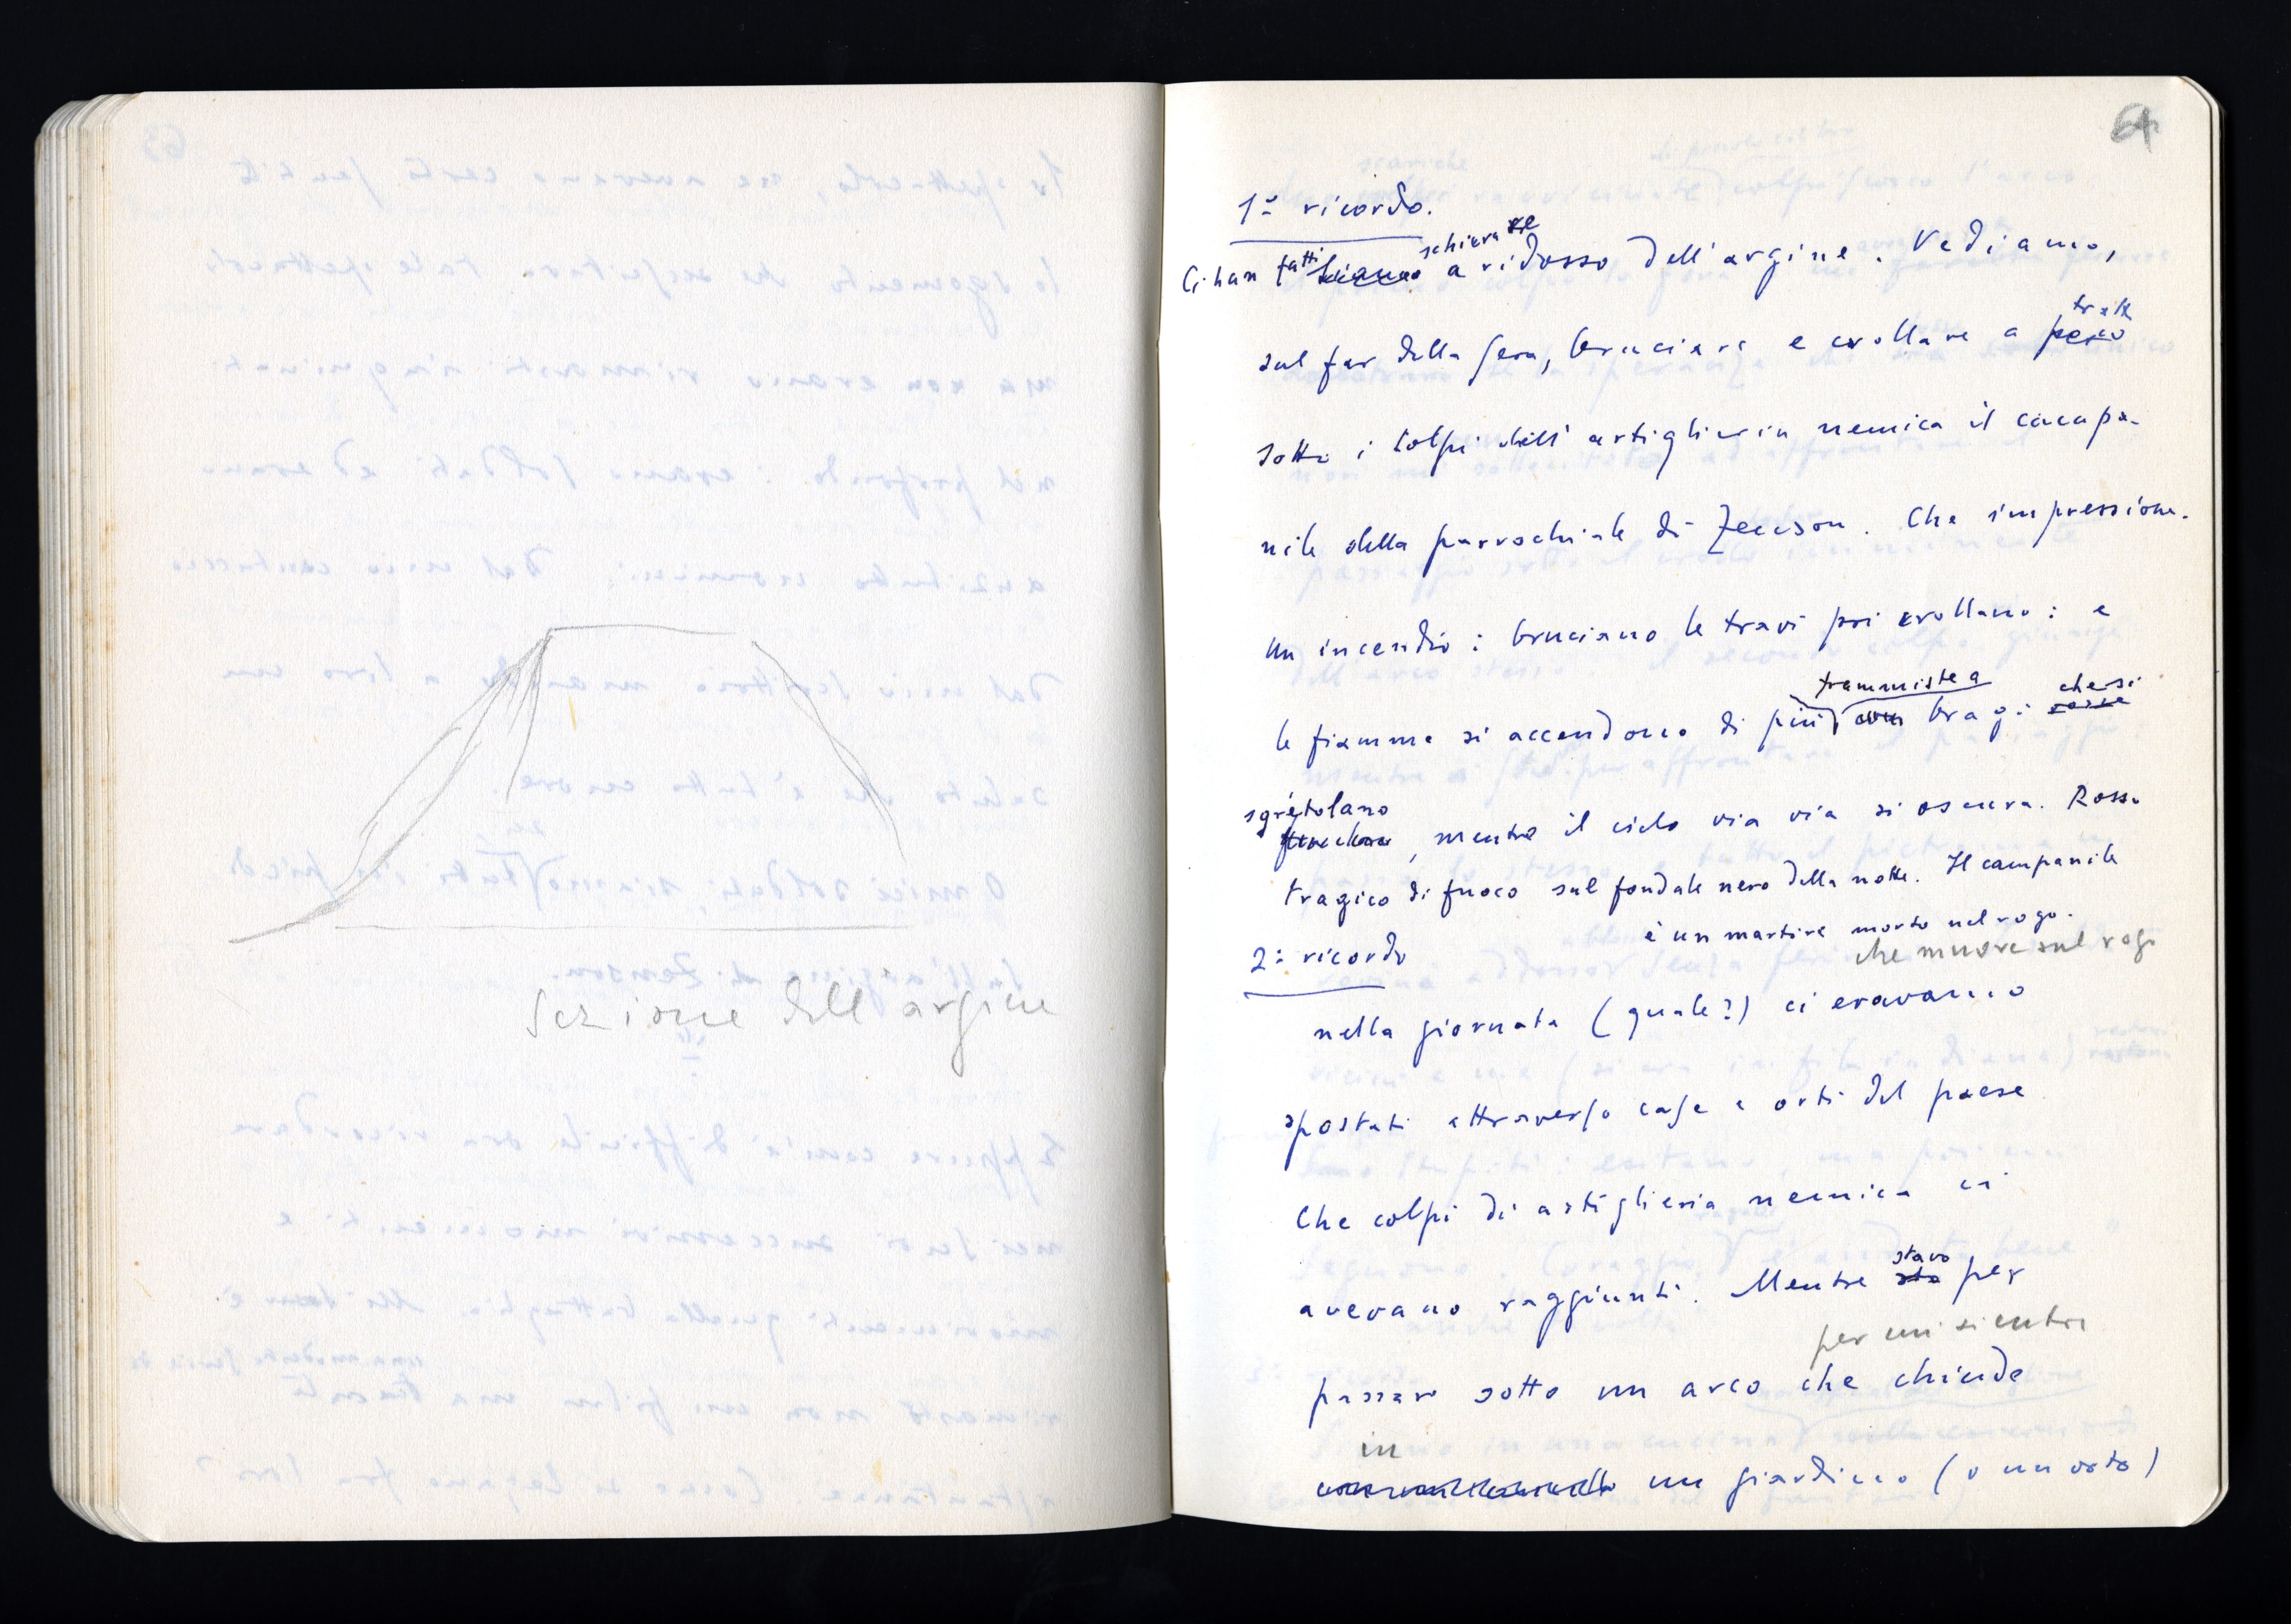 Sezione dell'argine
64
1° ricordo.
Ci han fatti schierare
siamo a ridosso dell'argine. Vediamo,
tratti
sul far della sera, bruciare e crollare a pezzo
sotto i colpi dell'artiglieria nemica il campa-
nile della parrochiale di Zenson. Che impressione.
un incendio: bruciano le travi poi crollano: e
trammiste a che si
le fiamme si accendono di più, con bragi rosse
sgretolano
, mentre il cielo via via si oscura. Rosso
tragico di fuoco sul fondale nero della notte. Il campanile
è un martire morto nel rogo.
che muore sul rogo
2° ricordo
nella giornata (quale?) ci eravamo
spostati attraverso case e orti del paese
Che colpi di artiglieria nemica ci
stavo
avevano raggiunti. Mentre sto per
per cui si entra
passare sotto un arco che chiude
in
un giardino (o un orto)